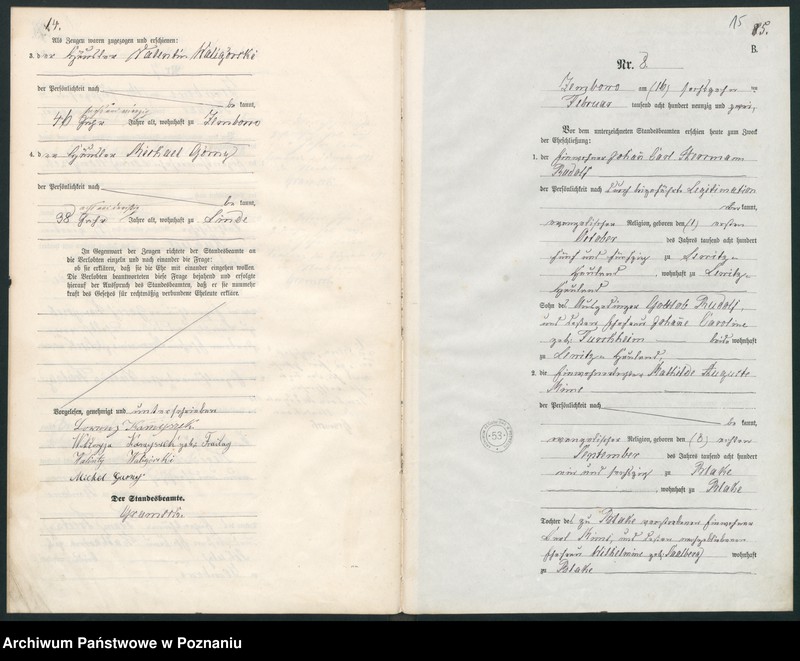 14.
Als Zeugen waren zugezogen und erschienen:
3. der Häusler Valentin Kaligorski
der Persönlichkeit nach
be kannt,
sechsundvierzig
46 Jahr Jahre alt, wohnhaft zu Zemborno
4. der Häusler Michael Gorny
der Persönlichkeit nach
be kannt,
achtunddreißig
38 Jahr Jahre alt, wohnhaft zu Linde
In Gegenwart der Zeugen richtete der Standesbeamte an
die Verlobten einzeln und nach einander die Frage:
ob sie erklären, daß sie die Ehe mit einander eingehen wollen.
Die Verlobten beantworteten diese Frage bejahend und erfolgte
hierauf der Ausspruch des Standesbeamten, daß er sie nunmehr
kraft des Gesetzes für rechtmäßig verbundene Eheleute erkläre.
Vorgelesen, genehmigt und unterschrieben
geb. Freitag
Michel Gurny
Der Standesbeamte.
15 15.
B.
Nr. 8
am (16) sechszehn ten
Februar tausend acht hundert neunzig und zwei,
Vor dem unterzeichneten Standesbeamten erschien heute zum Zweck
der Eheschließung:
1. der Einwohner Johann Carl Herrmann
Rudolf
der Persönlichkeit nach durch beigeführte Legitimation
kannt,
evangelischer Religion, geboren den (1) ersten
October des Jahres tausend acht hundert
fünf und fünfzig zu Lewitz=
Hauland, wohnhaft zu Lewitz=
Hauland
Sohn des Ausgedinger Gottlob Rudolf,
und dessen Ehefrau Johanne Caroline
geb. beide wohnhaft
zu Lewitz=Hauland,
2. die Einwohnertochter Mathilde Auguste
der Persönlichkeit nach
be kannt,
evangelischer Religion, geboren den (8) achten
September des Jahres tausend acht hundert
ein und sechszig zu Blake
, wohnhaft zu Blake
Tochter des zu Blake verstorbenen Einwohner
Carl und dessen nachgebliebenen
Ehefrau Wilhelmine geb. Saalberg wohnhaft
zu Blake
53
Archiwum Państwowe w Poznaniu